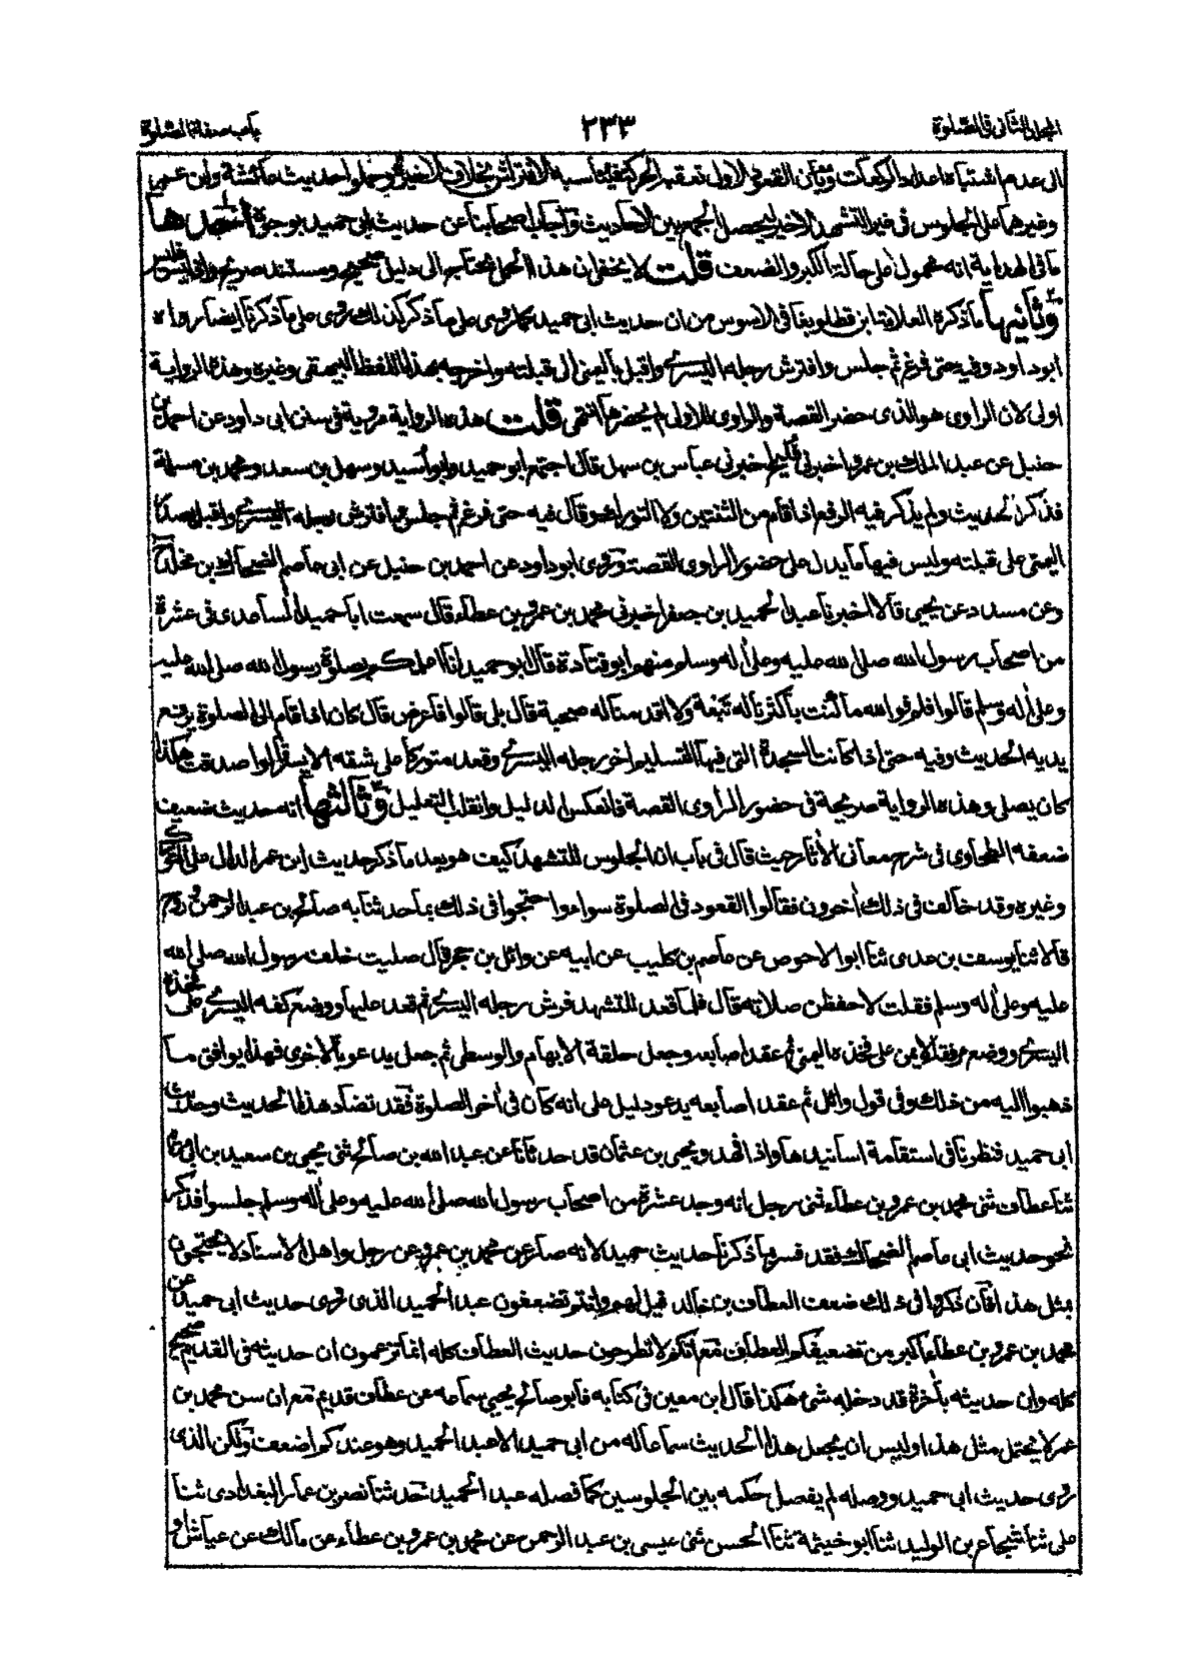 المجلد الثانى فى الصلوة ٢٣٣ باب صفة الصلوة
الى عدم اشتباه اعداد الركعات وبأن القعود الاول تعقبه الحركة فيناسبه الافتراش بخلاف الاخير وحملوا احاديث عائشة وابن عمر
وغيرهما على الجلوس فى غير التشهد الاخير ليحصل الجمع بين الاحاديث واجاب اصحابنا عن حديث ابى حميد بوجوه احدها
ما فى الهداية انه محمول على حالة الكبر والضعف قلت لا يخفى ان هذا الحمل محتاج الى دليل صحيح ومستند صريح واذ ليس فليس
وثانيها ما ذكره العلامة ابن قطلوبغا فى الاسوس من ان حديث ابى حميد كما روى على ما ذكر كذلك روى على ما ذكرنا ايضا رواه
ابو داود وفيه حتى فرغ ثم جلس وافترش رجله اليسرى واقبل باليمنى الى قبلته واخرجه بهذا اللفظ البيهقى وغيره وهذه الرواية
اولى لان الراوى هو الذى حضر القصة والراوى للاول لم يحضرها انتهى قلت هذه الرواية مروية فى سنن ابى داود عن احمد بن
حنبل عن عبد الملك بن عمرو اخبرنى فليح اخبرنى عباس بن سهل قال اجتمع ابو حميد وابو اسيد وسهل بن سعد ومحمد بن مسلمة
فذكر الحديث ولم يذكر فيه الرفع اذا قام من الثنتين ولا التورك وقال فيه حتى فرغ ثم جلس فافترش رجله اليسرى واقبل بصدر
اليمنى على قبلته وليس فيها ما يدل على حضور الراوى القصة وروى ابو داود عن احمد بن حنبل عن ابى عاصم الضحاك بن مخلد ح
وعن مسدد عن يحيى قالا اخبرنا عبد الحميد بن جعفر اخبرنى محمد بن عمرو بن عطاء قال سمعت ابا حميد الساعدى فى عشرة
من اصحاب رسول الله صلى الله عليه وعلى اله وسلم منهم ابو قتادة قال ابو حميد انا اعلمكم بصلوة رسول الله صلى الله عليه
وعلى اله وسلم قالوا فلم فوالله ما كنت باكثرنا له تبعة ولا اقدمنا له صحبة قال بلى قالوا فاعرض قال كان اذا قام الى الصلوة يرفع
يديه الحديث وفيه حتى اذا كانت السجدة التى فيها التسليم اخر رجله اليسرى وقعد متوركا على شقه الايسر قالوا صدقت هكذا
كان يصلى وهذه الرواية صريحة فى حضور الراوى القصة فانعكس الدليل وانقلب التعليل وثالثها انه حديث ضعيف
ضعفه الطحاوى فى شرح معانى الأثار حيث قال فى باب ان الجلوس للتشهد كيف هو بعد ما ذكر حديث ابن عمر الدال على التورك
وغيره وقد خالف فى ذلك أخرون فقالوا القعود فى الصلوة سواء واحتجوا فى ذلك بما حدثنا به صالح بن عبد الرحمن وروح
قالا ثنا يوسف بن عدى ثنا ابو الاحوص عن عاصم بن كليب عن ابيه عن وائل بن حجر قال صليت خلف رسول الله صلى الله
عليه وعلى اله وسلم فقلت لاحفظن صلاته قال فلما قعد للتشهد فرش رجله اليسرى ثم قعد عليها ووضع كفه اليسرى على فخذه
اليسرى ووضع مرفقه الايمن على فخذه اليمنى ثم عقد اصابعه وجعل حلقة الابهام والوسطى ثم جعل يدعو بالاخرى فهذا يوافق ما
ذهبوا اليه من ذلك وفى قول وائل ثم عقد اصابعه يدعو دليل على انه كان فى أخر الصلوة فقد تضاد هذا الحديث وحديث
ابى حميد فنظرنا فى استقامة اسانيدها واذا فهد ويحيى بن عثمان قد حدثانا عن عبد الله بن صالح ثنى يحيى بن سعيد بن ابى مريم
ثنا عطاف ثنى محمد بن عمرو بن عطاء ثنى رجل انه وجد عشرة من اصحاب رسول الله صلى الله عليه وعلى اله وسلم جلسوا فذكر
نحو حديث ابى عاصم الضحاك فقد فسد بما ذكرنا حديث حميد لانه صار عن محمد بن عمرو عن رجل واهل الاسناد لا يحتجون
بمثل هذا فان ذكروا فى ذلك ضعف العطاف بن خالد قيل لهم وانتم تضعفون عبد الحميد الذى روى حديث ابى حميد عن
محمد بن عمرو بن عطاء اكبر من تضعيفكم العطاف مع انكم لا تطرحون حديث العطاف كله انما تزعمون ان حديثه فى القديم صحيح
كله وان حديثه بأخرة قد دخله شئ هكذا قال ابن معين فى كتابه فابو صالح يحيى سماعه عن عطاف قديم مع ان سن محمد بن
عمرو لا يحتمل مثل هذا وليس ان يجعل هذا الحديث سماعا له من ابى حميد الا عبد الحميد وهو عندكم اضعف ولكن الذى
روى حديث ابى حميد ووصله لم يفصل حكمه بين الجلوسين كما فصله عبد الحميد حدثنا نصر بن عمار البغدادى ثنا
على ثنا شجاع بن الوليد ثنا ابو خيثمة ثنا الحسن ثنى عيسى بن عبد الرحمن عن محمد بن عمرو بن عطاء عن مالك عن عياش او